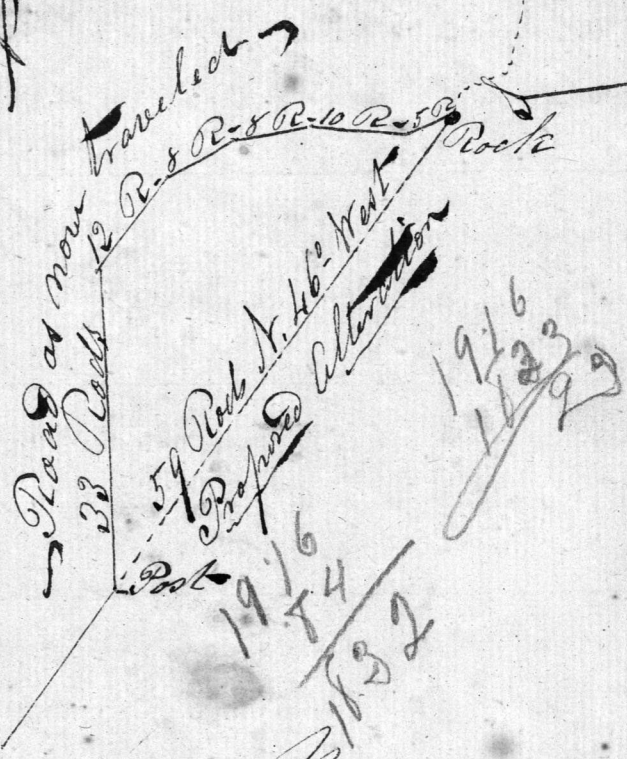 Road as now traveled
33 Rods
12 R-8 R-8 R-10 R-5 R
Rock
59 Rods N. 46° West
Proposed Alteration
Post
1916
1823
93
1916
84
1832